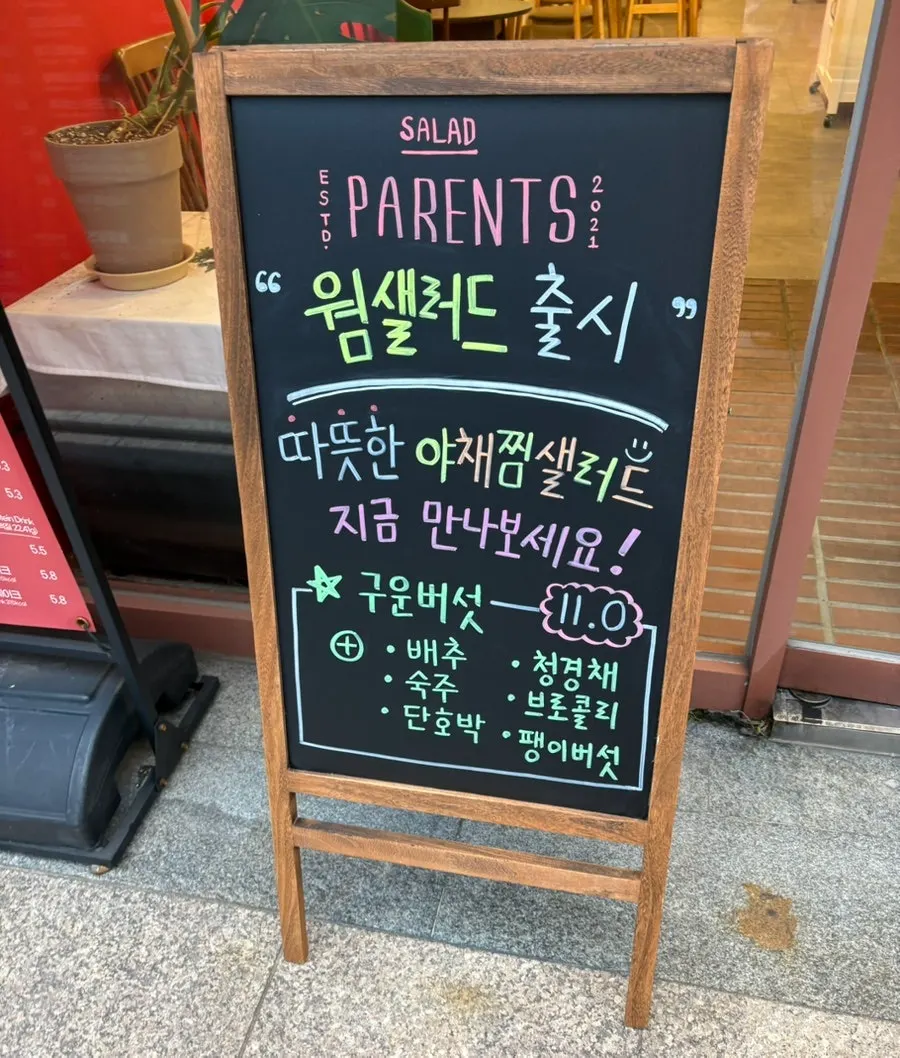 SALAD
ESTD. PARENTS 2021
“ 웜샐러드 출시 ”
따뜻한 야채찜샐러드
지금 만나보세요!
구운버섯 — 11.0
⊕ • 배추 • 청경채
• 숙주 • 브로콜리
• 단호박 • 팽이버섯
5.3
tein Drink
5.5
5.8
5.8